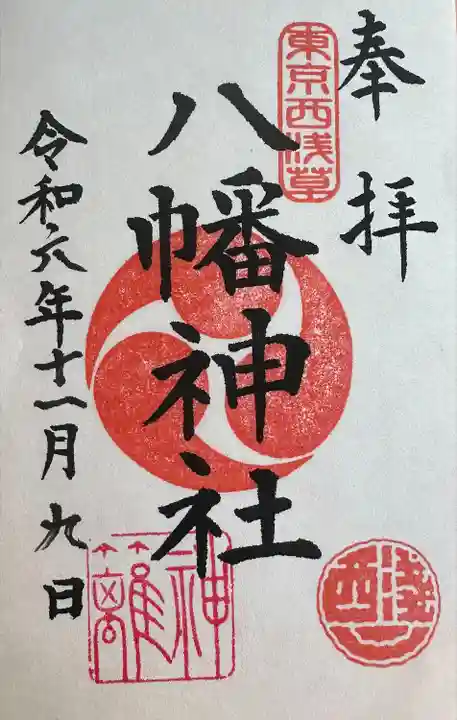 奉拝
東京西浅草
八幡神社
令和六年十一月九日
神籬
浅西